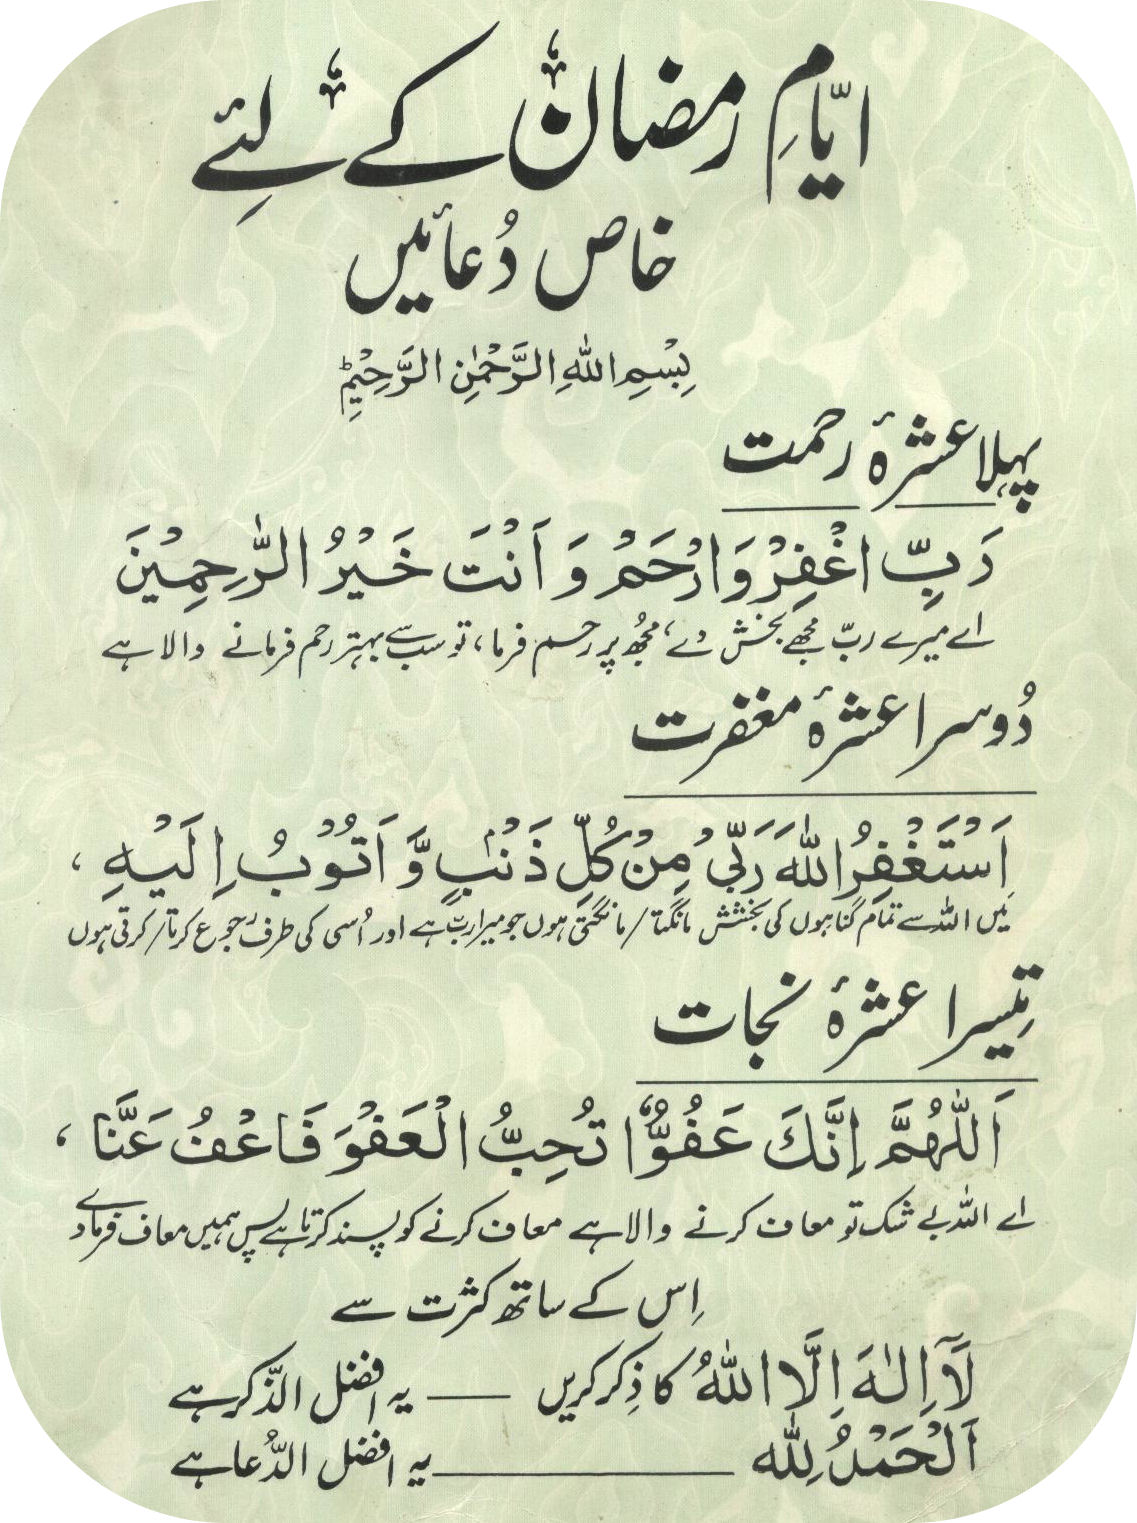 ایّامِ رمضان کے لئے
خاص دُعائیں
بِسْمِ اللهِ الرَّحْمٰنِ الرَّحِیْمِؕ
پہلا عشرۂ رحمت
رَبِّ اغْفِرْ وَارْحَمْ وَ اَنْتَ خَیْرُ الرّٰحِمِیْنَ
اے میرے ربّ مجھے بخش دے، مجھ پر رحم فرما، تو سب سے بہتر رحم فرمانے والا ہے
دُوسرا عشرۂ مغفرت
اَسْتَغْفِرُ اللهَ رَبِّیْ مِنْ کُلِّ ذَنْۢبٍ وَّ اَتُوْبُ اِلَیْهِ ،
میں اللہ سے تمام گناہوں کی بخشش مانگتا / مانگتی ہوں جو میرا ربّ ہے اور اُسی کی طرف رجوع کرتا / کرتی ہوں
تیسرا عشرۂ نجات
اَللّٰهُمَّ اِنَّكَ عَفُوٌّ تُحِبُّ الْعَفْوَ فَاعْفُ عَنَّا ،
اے اللہ بے شک تو معاف کرنے والا ہے معاف کرنے کو پسند کرتا ہے پس ہمیں معاف فرما دے
اِس کے ساتھ کثرت سے
لَاۤ اِلٰهَ اِلَّا اللهُ کا ذِکر کریں —— یہ افضل الذّکر ہے
اَلْحَمْدُ لِلّٰه —————— یہ افضل الدُّعا ہے